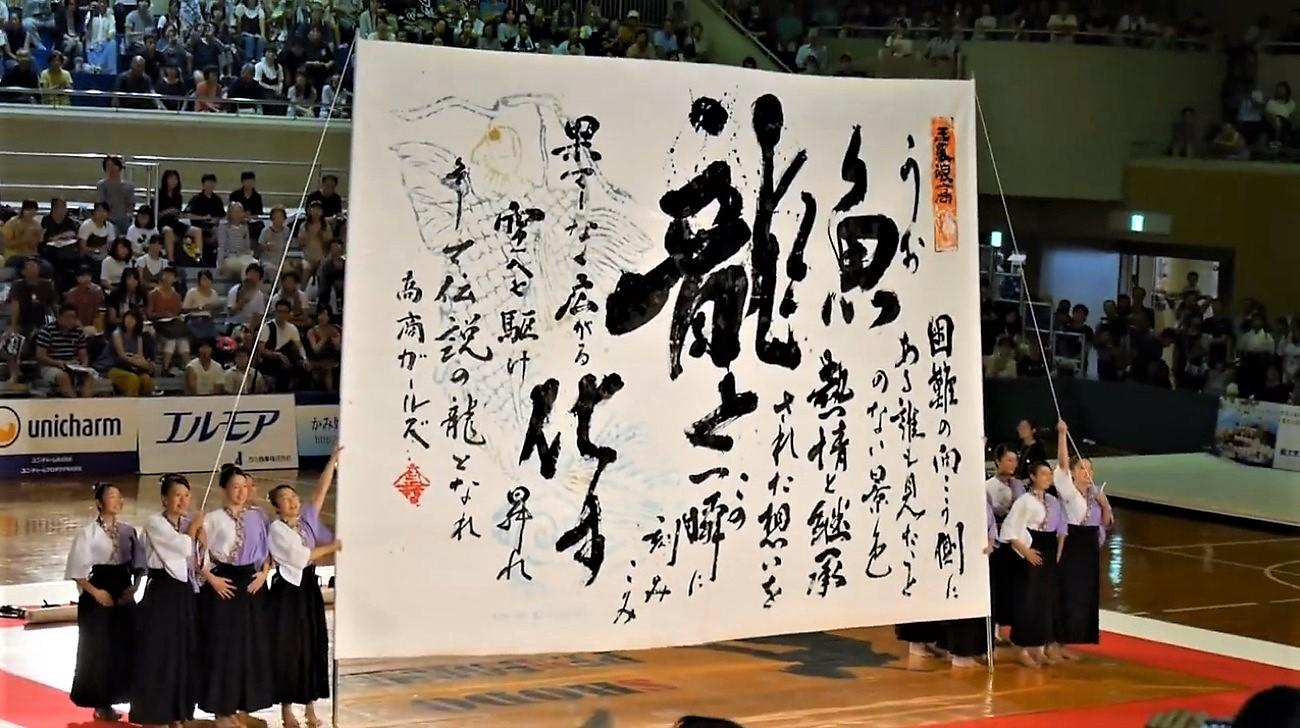 うお
困難の向こう側に
ある誰も見たこと
のない景色
魚
熱情と継承
された想いを
龍と
この
一瞬に
刻み
こみ
化す
果てなく広がる
空へと駆け
昇れ
そして伝説の龍となれ
高商ガールズ
unicharm
エルモア
SHODO